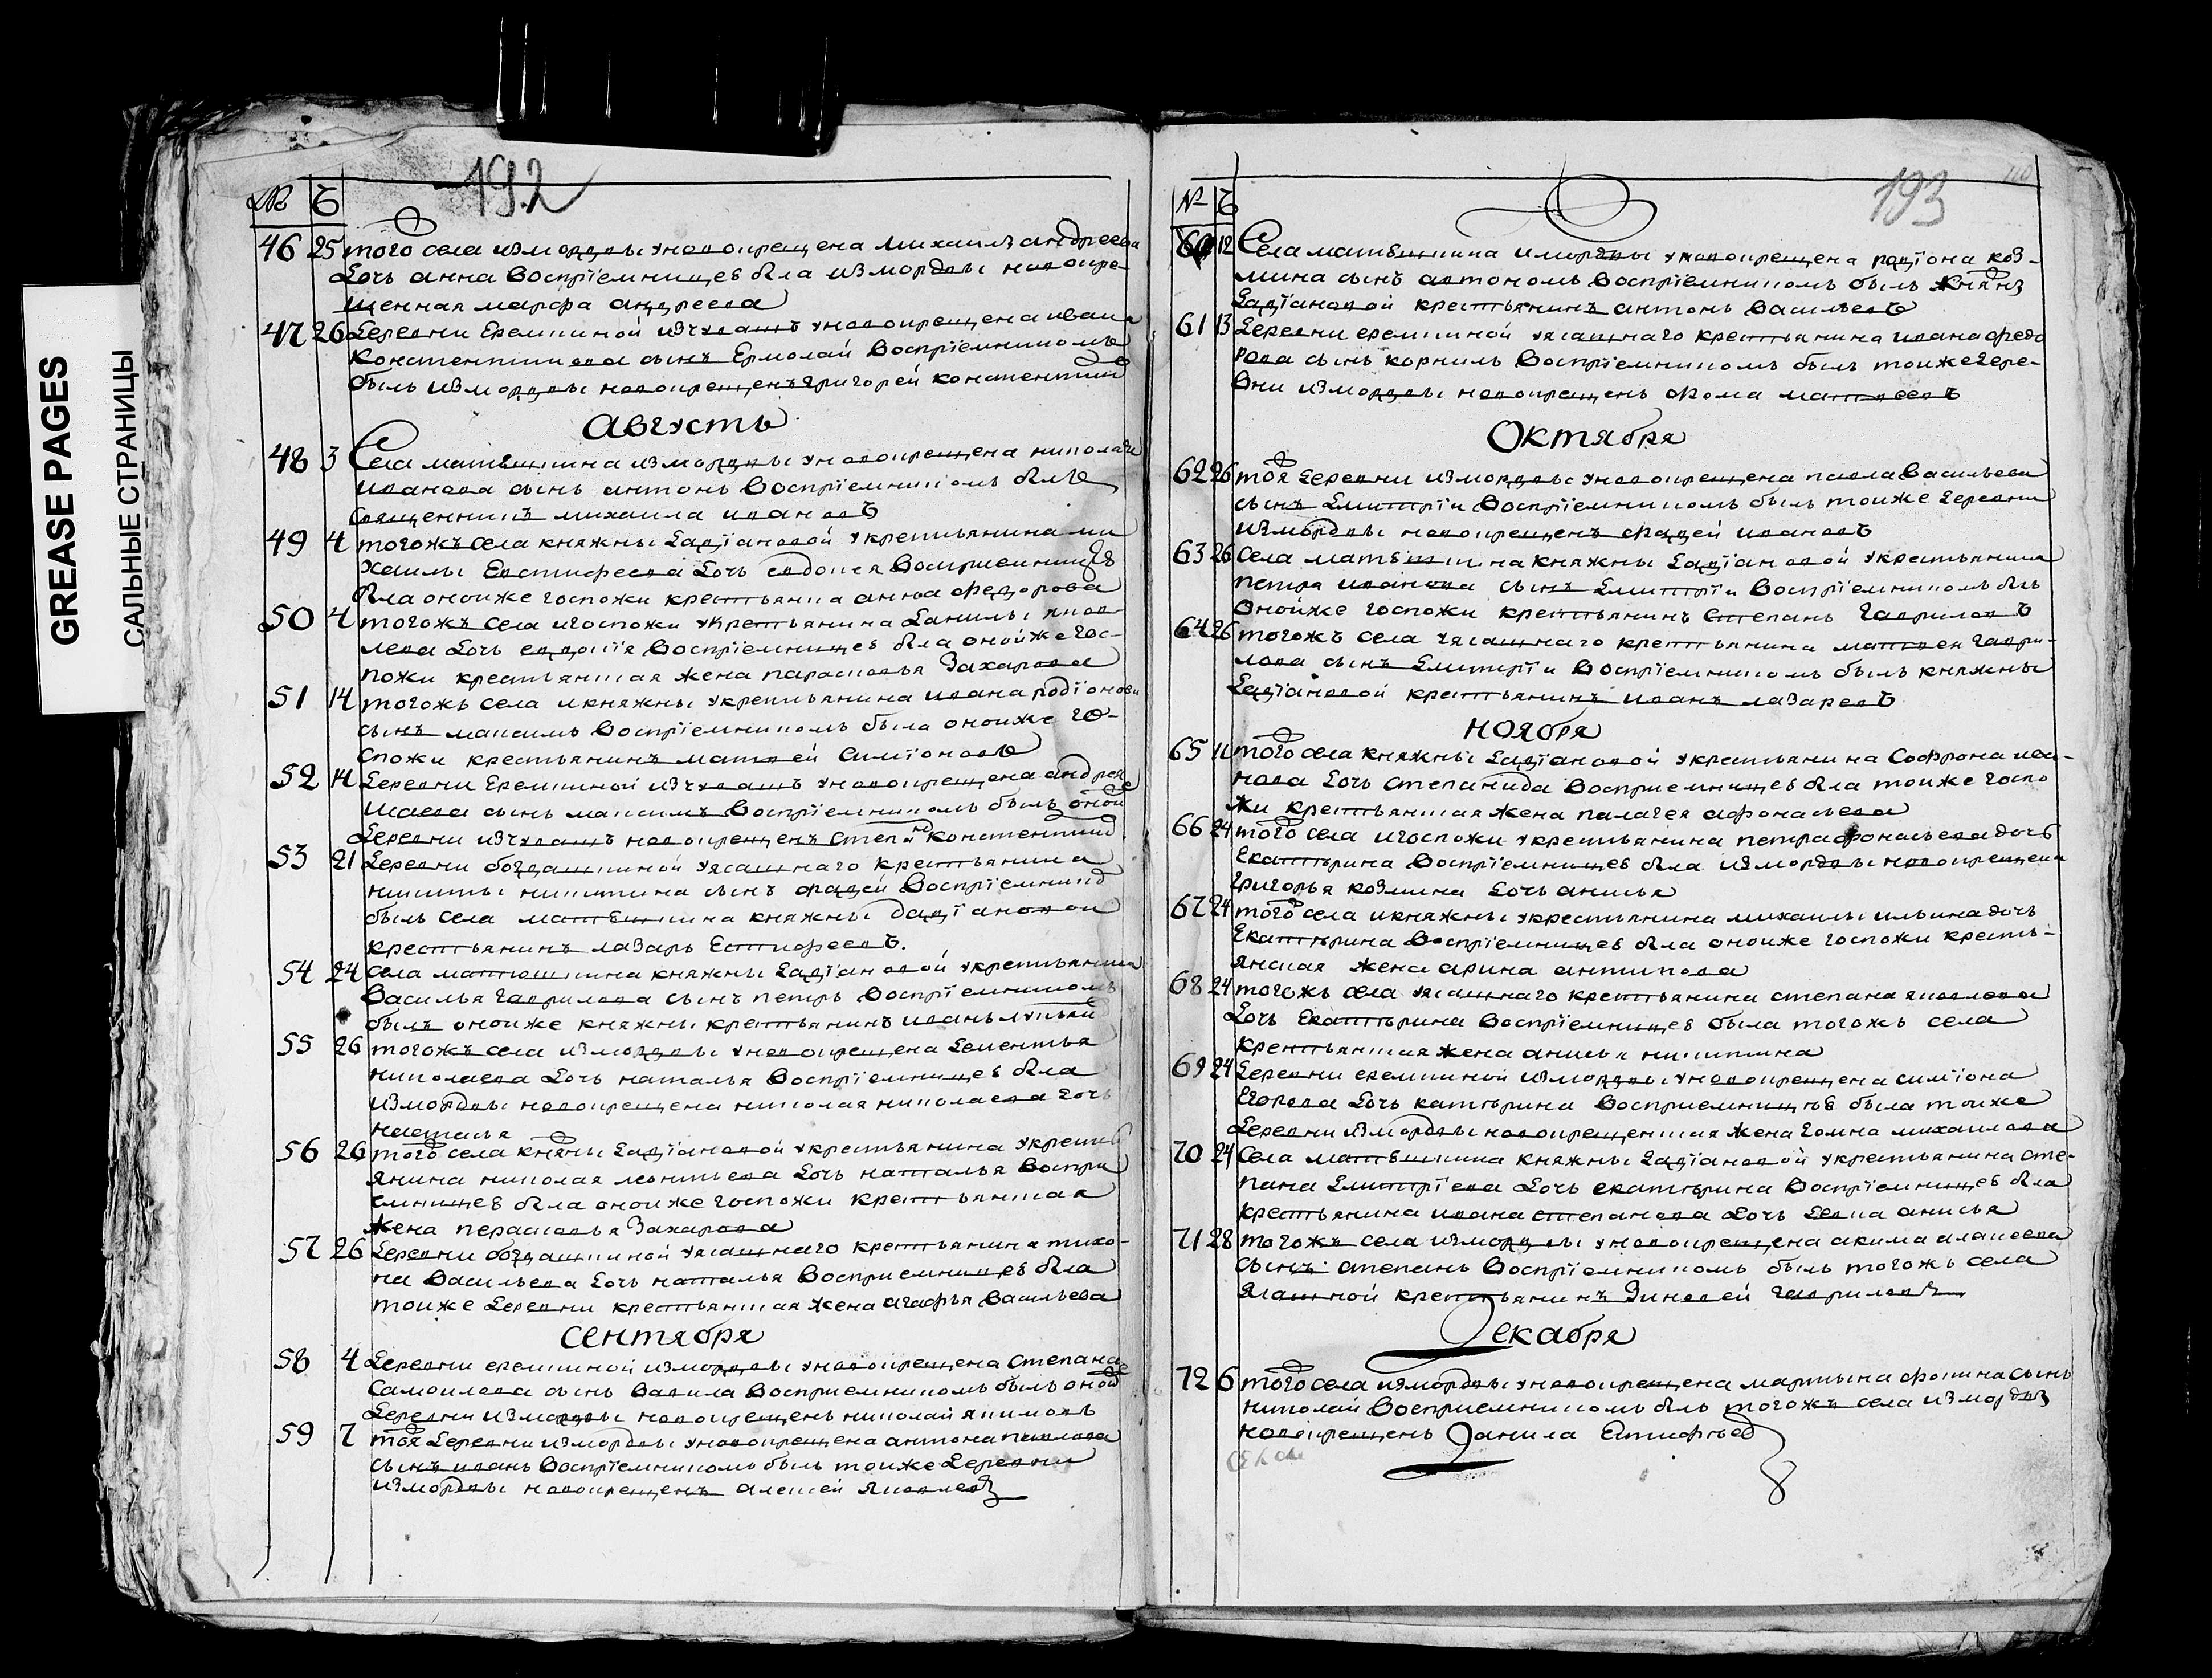 GREASE PAGES
САЛЬНЫЕ СТРАНИЦЫ
192
46 25 того села измордвы уновокрещена михаила андреева
дочь анна восприемницею была измордвы новокре-
щенная марфа андреева
47 26 деревни Еремкиной изчувашъ уновокрещена ивана
констентинова сынъ Ермолай восприемникомъ
былъ измордвы новокрещенъ григорей констентинов
Августъ
48 3 Села матвышкина измордвы уновокрещена николая
иванова сынъ антонъ восприемникомъ былъ
священникъ михаила ивановъ
49 4 тогожъ села княжны дадїановой укрестьянина ми
хаилы Евстифеева дочь евдокея восприемницею
была оноиже госпожи крестьянка анна федорова
50 4 тогожъ села игоспожи укрестьянина данилы яков-
лева дочь евдокїя восприемницею была онойже гос-
пожи крестьянская жена парасковья Захарова
51 14 тогожъ села икняжны укрестьянина ивана родїонова
сынъ максимъ восприемникомъ была оноиже го-
спожи крестьянинъ матвей симїоновъ
52 14 деревни Еремкиной изчувашъ уновокрещена андрея
исаева сынъ максимъ восприемникомъ былъ оной
деревни изчувашъ новокрещенъ степанъ констентинов
53 21 деревни богдашкиной уясашнаго крестьянина
никиты никитина сынъ фадей восприемником
былъ села матвышкина княжны дадїановой
крестьянинъ лазарь Естифеевъ.
54 24 села матюшкина княжны дадїановой укрестьянина
Василья гаврилова сынъ петръ восприемникомъ
былъ оноиже княжны крестьянинъ иванъ лукьянов
55 26 тогожъ села измордвы уновокрещена дементья
николаева дочь наталья восприемницею была
измордвы новокрещена николая николаева дочь
насталья
56 26 того села княжны дадїановой укрестьянина укресть
янина николая леонтьева дочь наталья воспри
емницею была оноиже госпожи крестьянская
жена перасковья Захарова
57 26 деревни богдашкиной уясашнаго крестьянина тихо-
на Васильева дочь наталья восприемницею была
тоиже деревни крестьянская жена агафья васильева
Сентября
58 4 деревни еремкиной измордвы уновокрещена степана
самоилова сынъ вавила восприемникомъ былъ оной
деревни измордвы новокрещенъ николай якимовъ
59 7 тоя деревни измордвы уновокрещена антона павлова
сынъ иванъ восприемникомъ былъ тоиже деревни
измордвы новокрещенъ алексей яковлевъ
№
193
60 12 Села матвышкина имордвы уновокрещена радїона коз-
мина сынъ автономъ восприемникомъ былъ княжны
дадїановой крестьянинъ антонъ васильевъ
61 13 деревни еремкиной уясашнаго крестьянина ивана федо
рова сынъ корнилъ восприемникомъ былъ тоижедере-
вни измордвы новокрещенъ фома матвеевъ
Октября
62 26 тоя деревни измордвы уновокрещена павла васильева
сынъ димитрїи восприемникомъ былъ тоиже деревни
измордвы новокрещенъ фадей ивановъ
63 26 села матвышкина княжны дадїановой укрестьянина
петра иванова сынъ димитрїи восприемникомъ былъ
онойже госпожи крестьянинъ степанъ гавриловъ
64 26 тогожъ села уясашнаго крестьянина матвея гаври-
лова сынъ димитрїи восприемникомъ былъ княжны
дадїановой крестьянинъ иванъ лазаревъ
Ноября
65 11 того села княжны дадїановой укрестьянина софрона ива-
нова дочь степанида восприемницею была тоиже госпо
жи крестьянская жена палагея афонасьева
66 24 того села игоспожи укрестьянина петра афонасьева дочь
Екатерина восприемницею была измордвы новокрещена
григорья козмина дочь анисья
67 24 того села икняжны укрестьянина михаилы ильина дочь
Екатерина восприемницею была оноиже госпожи кресть-
янская жена арина антипова
68 24 тогожъ села уясашнаго крестьянина степана яковлева
дочь Екатерина восприемницею была тогожъ села
крестьянская жена анисья никитина
69 24 деревни еремкиной измордвы уновокрещена симїона
Егорова дочь катерина восприемницею была тоиже
деревни измордвы новокрещенская жена домна михаилова
70 24 села матвышкина княжны дадїановой укрестьянина сте-
пана димитрїева дочь екатерина восприемницею была
крестьянина ивана степанова дочь девка анисья
71 28 тогожъ села измордвы уновокрещена акима алаксева
сынъ степанъ восприемникомъ былъ тогожъ села
ясашной крестьянинъ зиновей гавриловъ
Декабря
72 6 того села измордвы уновокрещена мартына фокина сынъ
николай восприемникомъ былъ тогожъ села измордвы
новокрещенъ Данила Естифѣев